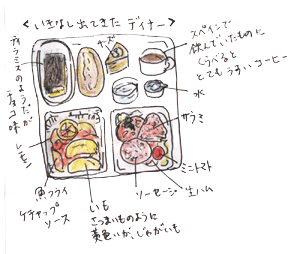 <いきなし出てきた ディナー>
チーズ
スペインで
飲んでいたものに
くらべると
とてもうすいコーヒー
ティラミスのようだが
チョコ味
水
サラミ
レモン
ミニトマト
生ハム
ソーセージ
魚フライ
ケチャップ
ソース
いも
さつまいものように
黄色いが、じゃがいも